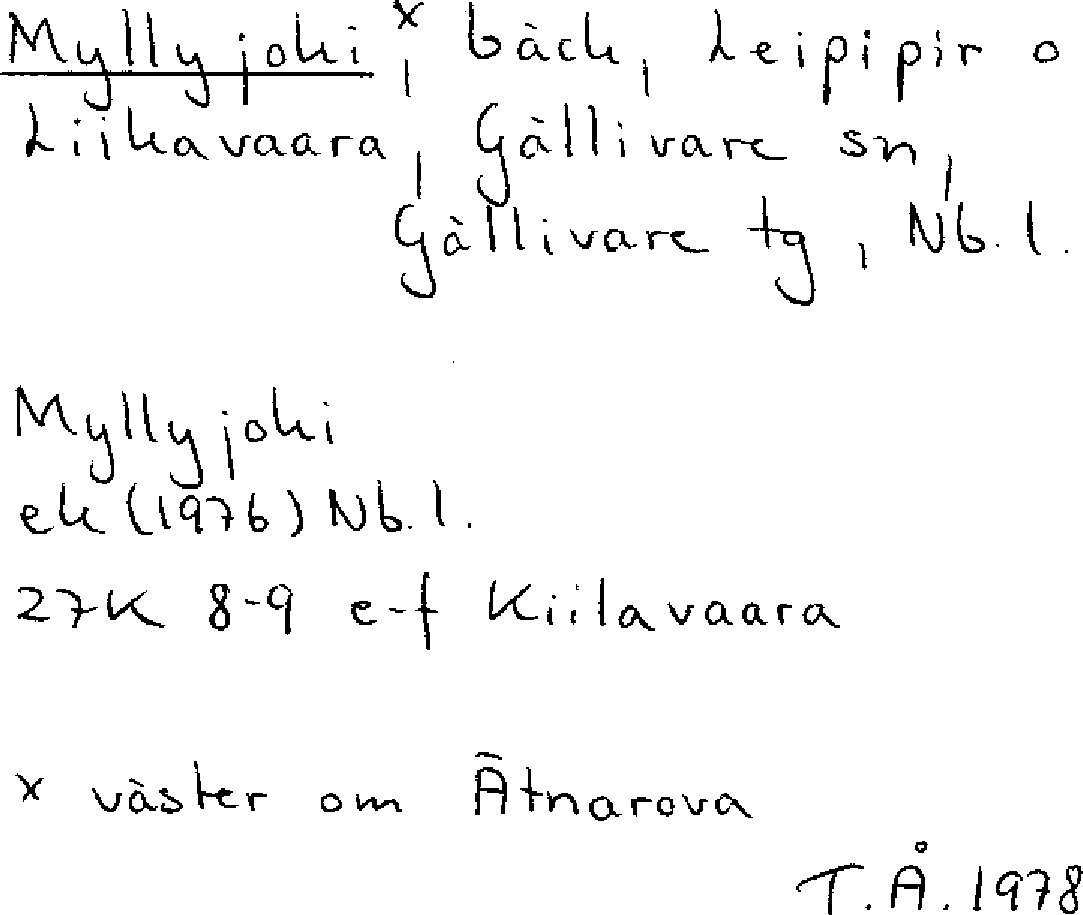 Myllyjoki ˣ, bäck, Leipipir o
Liikavaara, Gällivare sn,
Gällivare tg, Nb. l.
Myllyjoki
ek (1976) Nb. l.
27K 8-9 e-f Kiilavaara
x väster om Ätnarova
T. Å. 1978